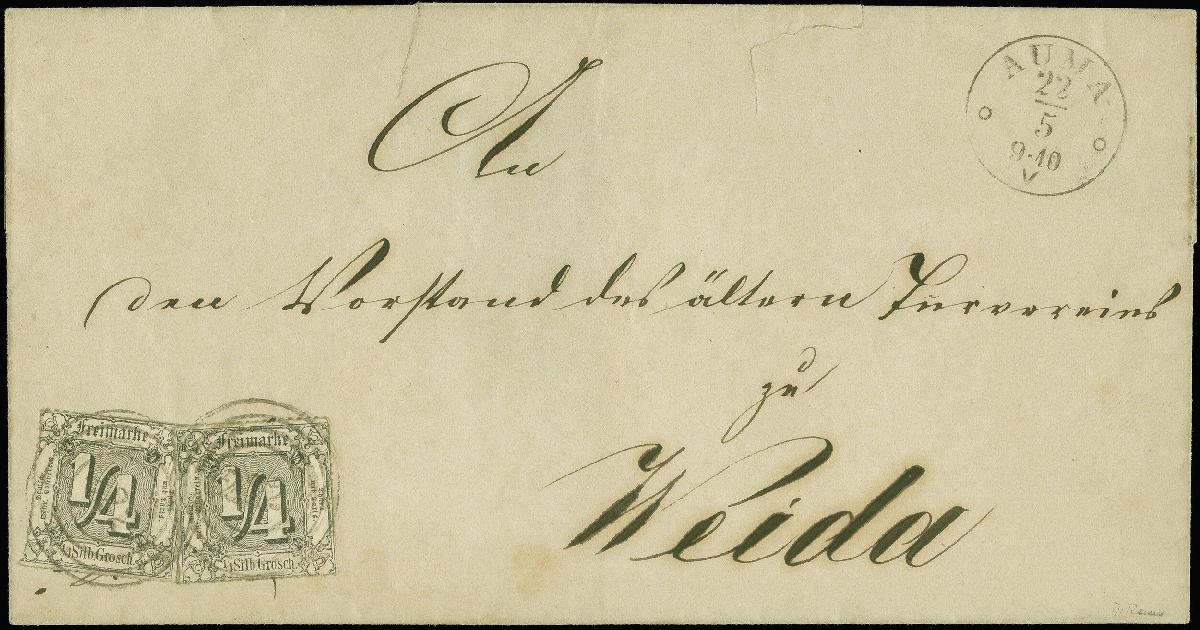 AUMA
22
5
9-10
V
An
den Vorstand des ältern Turnvereins
zu
Weida
Freimarke
1/4
1/4 Silb. Grosch.
Freimarke
1/4
1/4 Silb. Grosch.